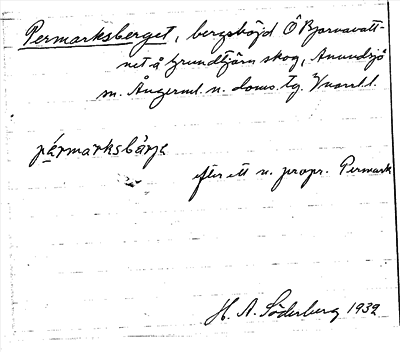 Permarksberget, bergshöjd Ö Bjornavatt-
net å Grundtjärn skog, Anundsjö
sn. Ångerml. n. doms. tg.
pármarksbärjɛ
efter ett n. propr. Permark
H. A. Söderberg 1932